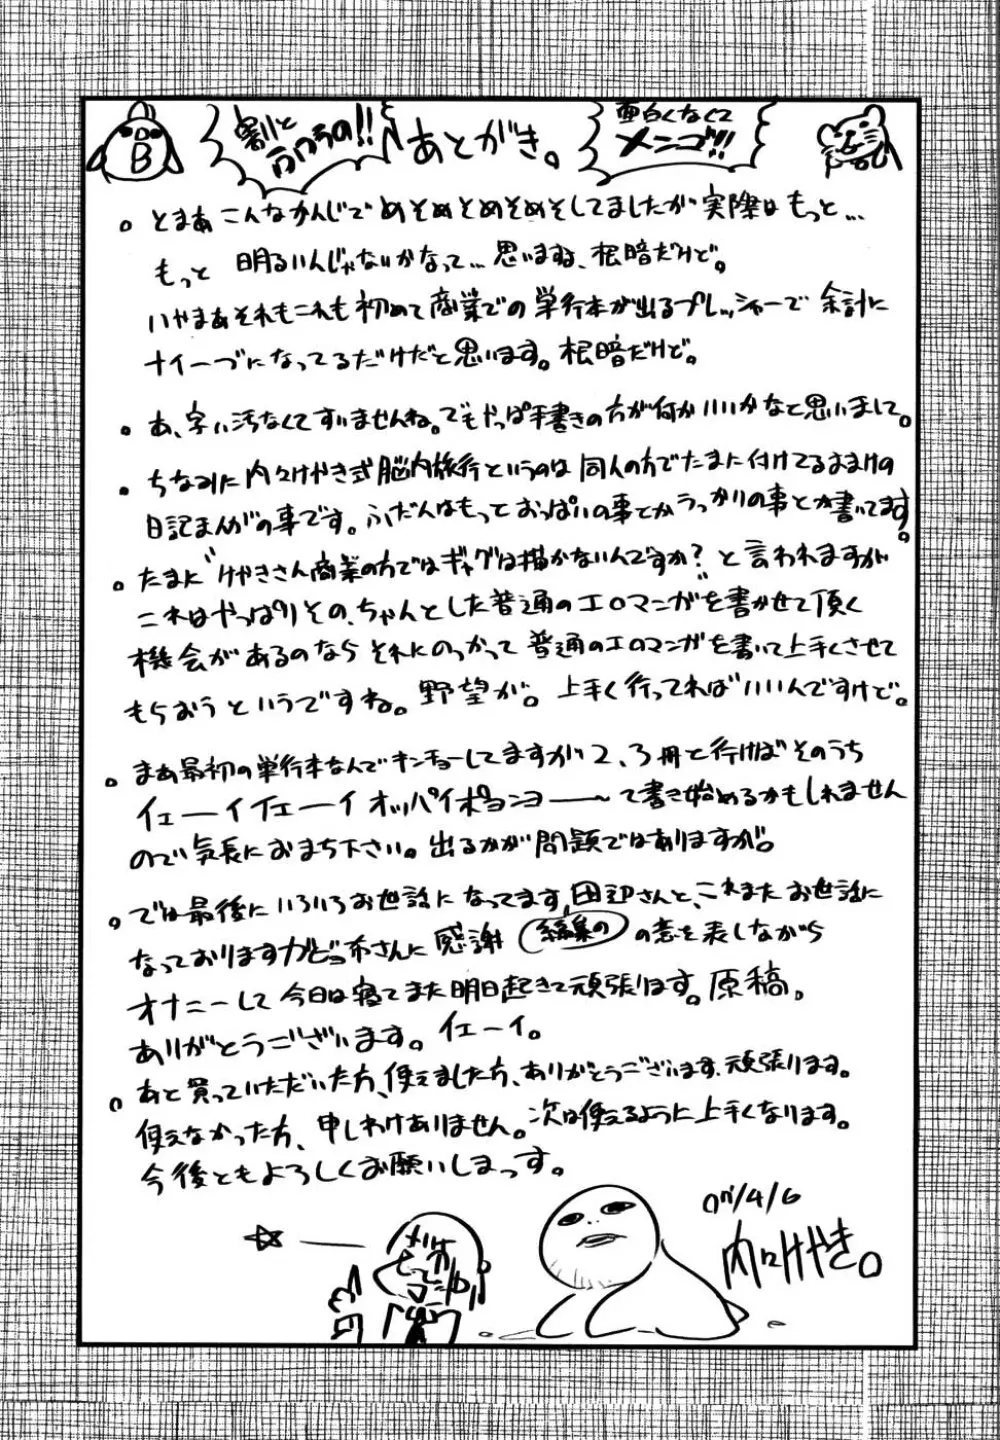 割と
あとがき。
面白くなくて
メンゴ!!!
B
。とまあこんなかんじでめそめそめそめそしてましたが実際はもっと…
もっと 明るいんじゃないかなって…思いますね、根暗だけど。
いやまあそれもこれも初めて商業での単行本が出るプレッシャーで余計に
ナイーブになってるだけだと思います。根暗だけど。
。あ、字い汚なくてすいませんね。でもやっぱ手書きの方が何かいいかなと思いまして。
。ちなみに内々けやき式脳内旅行というのは同人の方でたまに付けてるおまけの
日記まんがの事です。ふだんはもっとおっぱいの事とかうっかりの事とか書いてます。
。たまに"けやきさん商業の方ではギャグは描かないんですか?"と言われますが
これはやっぱりその、ちゃんとした普通のエロマンガを書かせて頂く
機会があるのならそれにのっかって普通のエロマンガを書いて上手くさせて
もらおうというですね。野望が。上手く行ってればいいんですけど。
。まあ最初の単行本なんでキンチョーしてますが2、3冊と行けばそのうち
イェーイイェーイオッパイポヨンヨーー〜て書き始めるかもしれません
ので気長におまち下さい。出るかが問題ではありますが。
。では最後にいろいろお世話になってます田辺さんと、これまたお世話に
なっておりますガビョ布さんに感謝(編集の)の意を表しながら
オナニーして今日は寝てまた明日起きて頑張ります。原稿。
ありがとうございます。イェーイ。
。あと買っていただいた方、使えました方、ありがとうございます、頑張ります。
使えなかった方、申しわけありません。次は使えるように上手くなります。
今後ともよろしくお願いしまっす。
07/4/6
内々けやき。